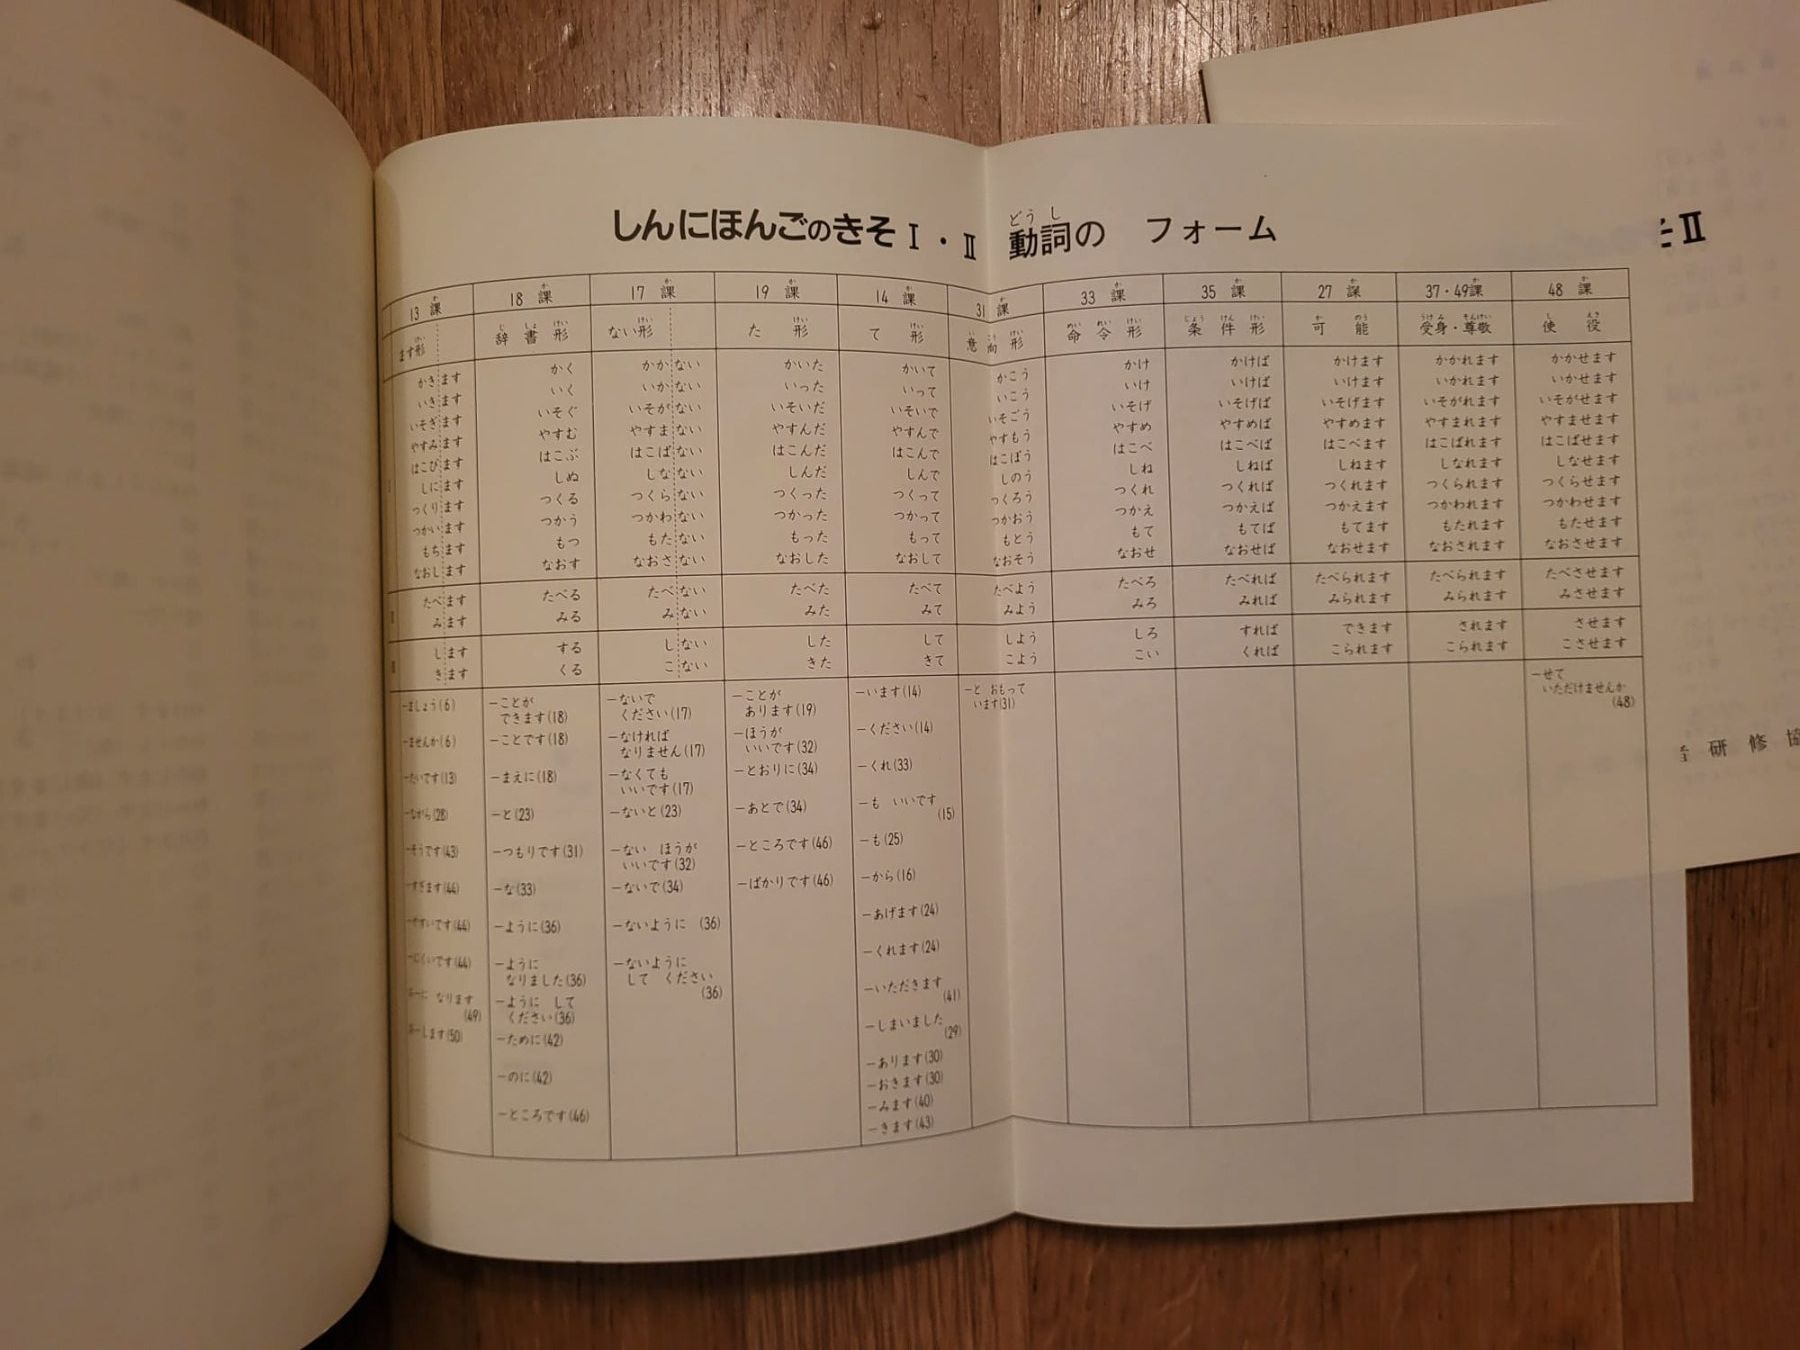 しんにほんごのきそ Ⅰ・Ⅱ 動詞の フォーム
どう し
13 課 18 課 17 課 19 課 14 課 31 課 33 課 35 課 27 課 37・49課 48 課
ます形 辞書形 ない形 た形 て形 意向形 命令形 条件形 可能 受身・尊敬 使役
かきます かく かかない かいた かいて かこう かけ かけば かけます かかれます かかせます
いきます いく いかない いった いって いこう いけ いけば いけます いかれます いかせます
いそぎます いそぐ いそがない いそいだ いそいで いそごう いそげ いそげば いそげます いそがれます いそがせます
やすみます やすむ やすまない やすんだ やすんで やすもう やすめ やすめば やすめます やすまれます やすませます
はこびます はこぶ はこばない はこんだ はこんで はこぼう はこべ はこべば はこべます はこばれます はこばせます
しにます しぬ しなない しんだ しんで しのう しね しねば しねます しなれます しなせます
つくります つくる つくらない つくった つくって つくろう つくれ つくれば つくれます つくられます つくらせます
つかいます つかう つかわない つかった つかって つかおう つかえ つかえば つかえます つかわれます つかわせます
もちます もつ もたない もった もって もとう もて もてば もてます もたれます もたせます
なおします なおす なおさない なおした なおして なおそう なおせ なおせば なおせます なおされます なおさせます
たべます たべる たべない たべた たべて たべよう たべろ たべれば たべられます たべられます たべさせます
みます みる みない みた みて みよう みろ みれば みられます みられます みさせます
します する しない した して しよう しろ すれば できます されます させます
きます くる こない きた きて こよう こい くれば こられます こられます こさせます
ーましょう(6)
ーませんか(6)
ーたいです(13)
ーながら(28)
ーそうです(43)
ーすぎます(44)
ーやすいです(44)
ーにくいです(44)
おーに なります
(49)
おーします(50)
ーことが
できます(18)
ーことです(18)
ーまえに(18)
ーと(23)
ーつもりです(31)
ーな(33)
ーように(36)
ーように
なりました(36)
ーように して
ください(36)
ーために(42)
ーのに(42)
ーところです(46)
ーないで
ください(17)
ーなければ
なりません(17)
ーなくても
いいです(17)
ーないと(23)
ーない ほうが
いいです(32)
ーないで(34)
ーないように (36)
ーないように
して ください
(36)
ーことが
あります(19)
ーほうが
いいです(32)
ーとおりに(34)
ーあとで(34)
ーところです(46)
ーばかりです(46)
ーいます(14)
ーください(14)
ーくれ(33)
ーも いいです
(15)
ーも(25)
ーから(16)
ーあげます(24)
ーくれます(24)
ーいただきます
(41)
ーしまいました
(29)
ーあります(30)
ーおきます(30)
ーみます(40)
ーきます(43)
ーと おもって
います(31)
ーせて
いただけませんか
(48)
そⅡ
研修協